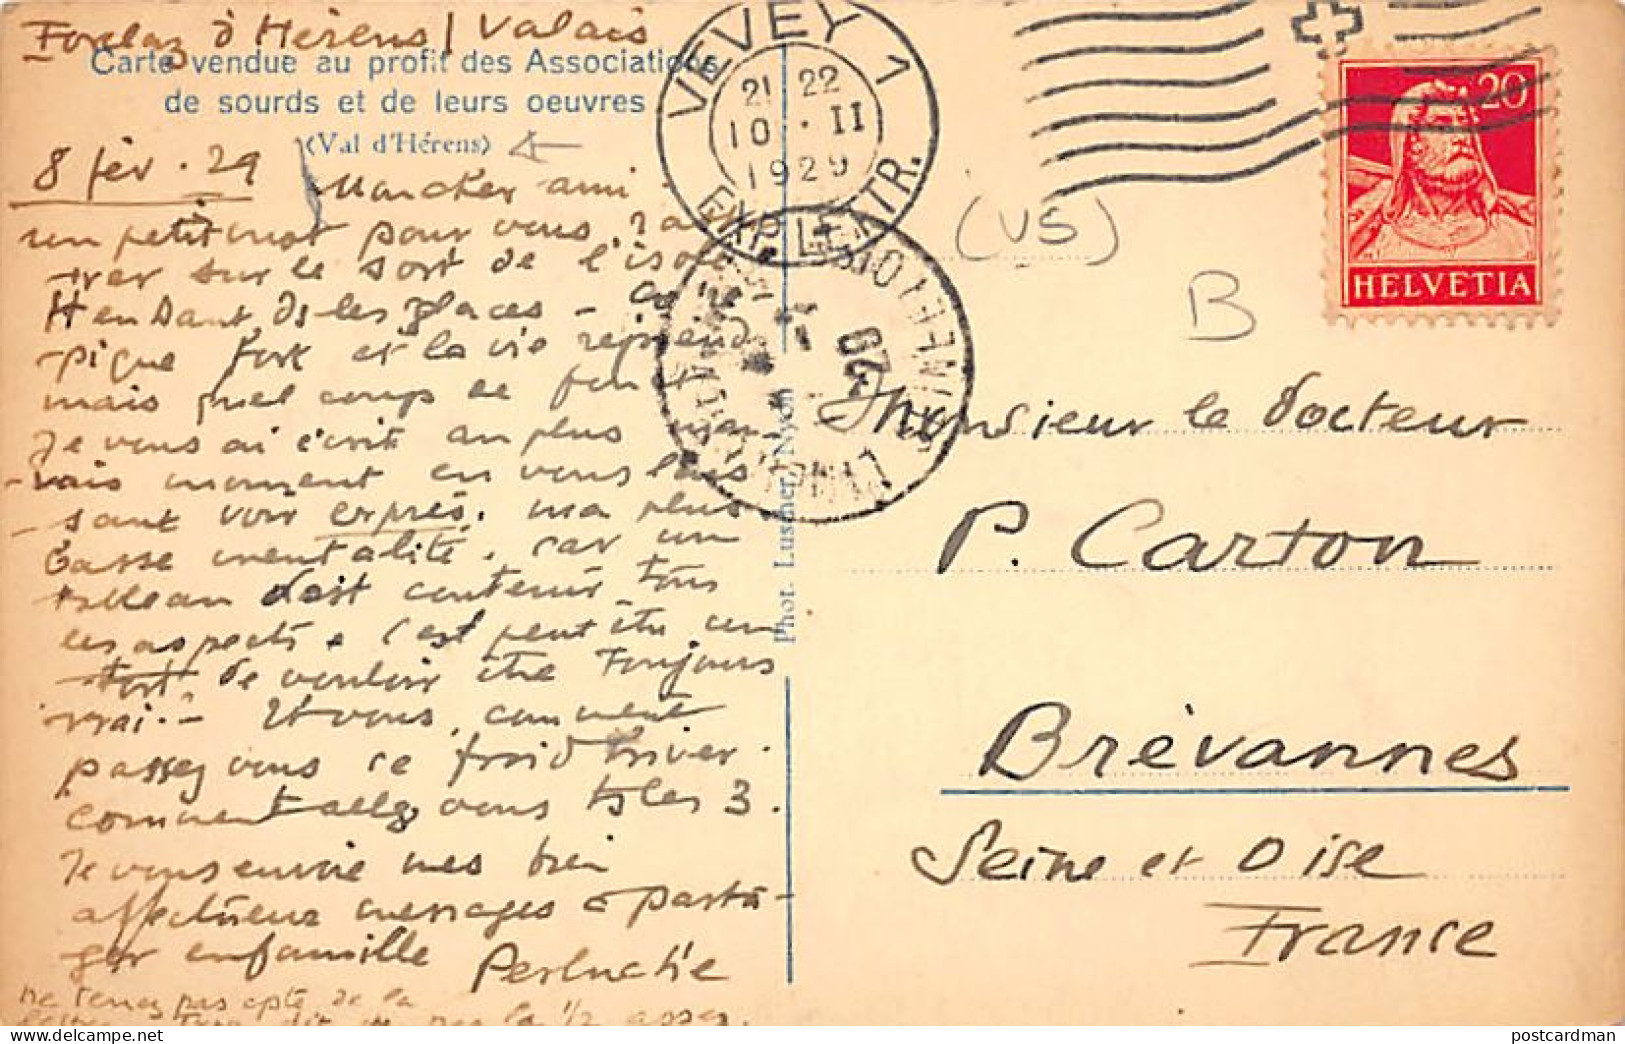 Forclaz d'Hérens / Valais
Carte vendue au profit des Associations
de sourds et de leurs oeuvres
(Val d'Hérens)
8 fév. 29
mon cher ami
un petit mot pour vous
sur le sort de l'isolé
les glaces -
pique fort et la vie reprend
mais quel coup de
Je vous ai écrit au plus mau-
-vais moment en vous lais-
-sant voir exprès. ma plus
basse mentalité. car un
tableau doit contenir tous
les aspects. c'est peut être un
tort de vouloir être toujours
vrai. - Et vous, comment
passez vous ce froid hiver.
comment allez vous tous les 3.
Je vous envoie mes bien
affectueux messages à parta-
ger en famille
ne tenez pas cpte de la
lettre
dit la 1/2 assez.
VEVEY 1
21 22
10. II
1929
EXP. LETTR.
29
Phot. Luscher, Nyon
20
HELVETIA
(VS)
B
Monsieur le docteur
P. Carton
Brévannes
Seine et Oise
France
postcardman